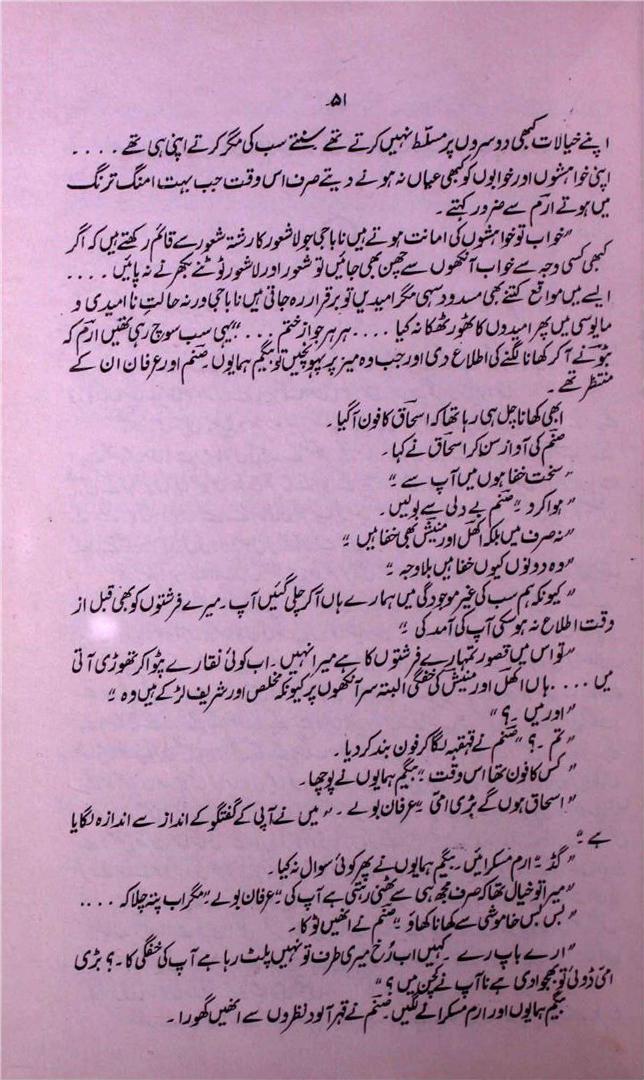 ۵۱
اپنے خیالات کبھی دوسروں پر مسلّط نہیں کرتے تھے سنتے سب کی مگر کرتے اپنی ہی تھے ....
اپنی خواہشوں اور خوابوں کو کبھی عیاں نہ ہونے دیتے صرف اس وقت جب بہت امنگ ترنگ
میں ہوتے ارم سے ضرور کہتے ۔
"خواب تو خواہشوں کی امانت ہوتے ہیں نا باجی جو لاشعور کا رشتہ شعور سے قائم رکھتے ہیں کہ اگر
کبھی کسی وجہ سے خواب آنکھوں سے چھن بھی جائیں تو شعور اور لاشعور ٹوٹنے بکھرنے نہ پائیں ....
ایسے میں مواقع کتنے بھی مسدود سہی مگر امیدیں تو برقرار رہ جاتی ہیں نا باجی ورنہ حالتِ ناامیدی و
مایوسی میں پھر امیدوں کا ٹھور ٹھکانہ کیا .... ہر ہر جواز ختم ..." یہی سب سوچ رہی تھیں ارم کہ
بوّ نے آکر کھانا لگنے کی اطلاع دی اور جب وہ میز پر پہونچیں تو بیگم ہمایوں ۔ صنم اور عرفان ان کے
منتظر تھے ۔
ابھی کھانا چل ہی رہا تھا کہ اسحاق کا فون آگیا ۔
صنم کی آواز سن کر اسحاق نے کہا ۔
"سخت خفا ہوں میں آپ سے ۔"
"ہوا کرو ۔" صنم بے دلی سے بولیں ۔
"نہ صرف میں بلکہ اکھل اور منیش بھی خفا ہیں ۔"
"وہ دونوں کیوں خفا ہیں بلاوجہ ۔"
"کیونکہ ہم سب کی غیر موجودگی میں ہمارے ہاں آکر چلی گئیں آپ ۔ میرے فرشتوں کو بھی قبل از
وقت اطلاع نہ ہو سکی آپ کی آمد کی ۔"
"تو اس میں قصور تمہارے فرشتوں کا ہے میرا نہیں ۔ اب کوئی نقارے پٹوا کر تھوڑی آتی
میں .... ہاں اکھل اور منیش کی خفگی البتہ سر آنکھوں پر کیونکہ مخلص اور شریف لڑکے ہیں وہ ۔"
"اور میں ۔؟"
"تم ۔؟" صنم نے قہقہہ لگا کر فون بند کر دیا ۔
"کس کا فون تھا اس وقت ۔" بیگم ہمایوں نے پوچھا ۔
"اسحاق ہوں گے بڑی امی ۔" عرفان بولے ۔ "میں نے آپی کے گفتگو کے انداز سے اندازہ لگایا
ہے ۔"
"گڈ ۔" ارم مسکرائیں ۔ بیگم ہمایوں نے پھر کوئی سوال نہ کیا ۔
"میرا تو خیال تھا کہ صرف مجھ ہی سے ٹھنی رہتی ہے آپ کی ۔" عرفان بولے ۔ "مگر اب پتہ چلا کہ ....
"بس بس خاموشی سے کھانا کھاؤ ۔" صنم نے انھیں ٹوکا ۔
"ارے باپ رے ۔ کہیں اب رُخ میری طرف تو نہیں پلٹ رہا ہے آپ کی خفگی کا ۔؟ بڑی
امی ڈوئی تو بھجوا دی ہے نا آپ نے کچن میں ؟"
بیگم ہمایوں اور ارم مسکرانے لگیں ۔ صنم نے قہر آلود نظروں سے انھیں گھورا ۔